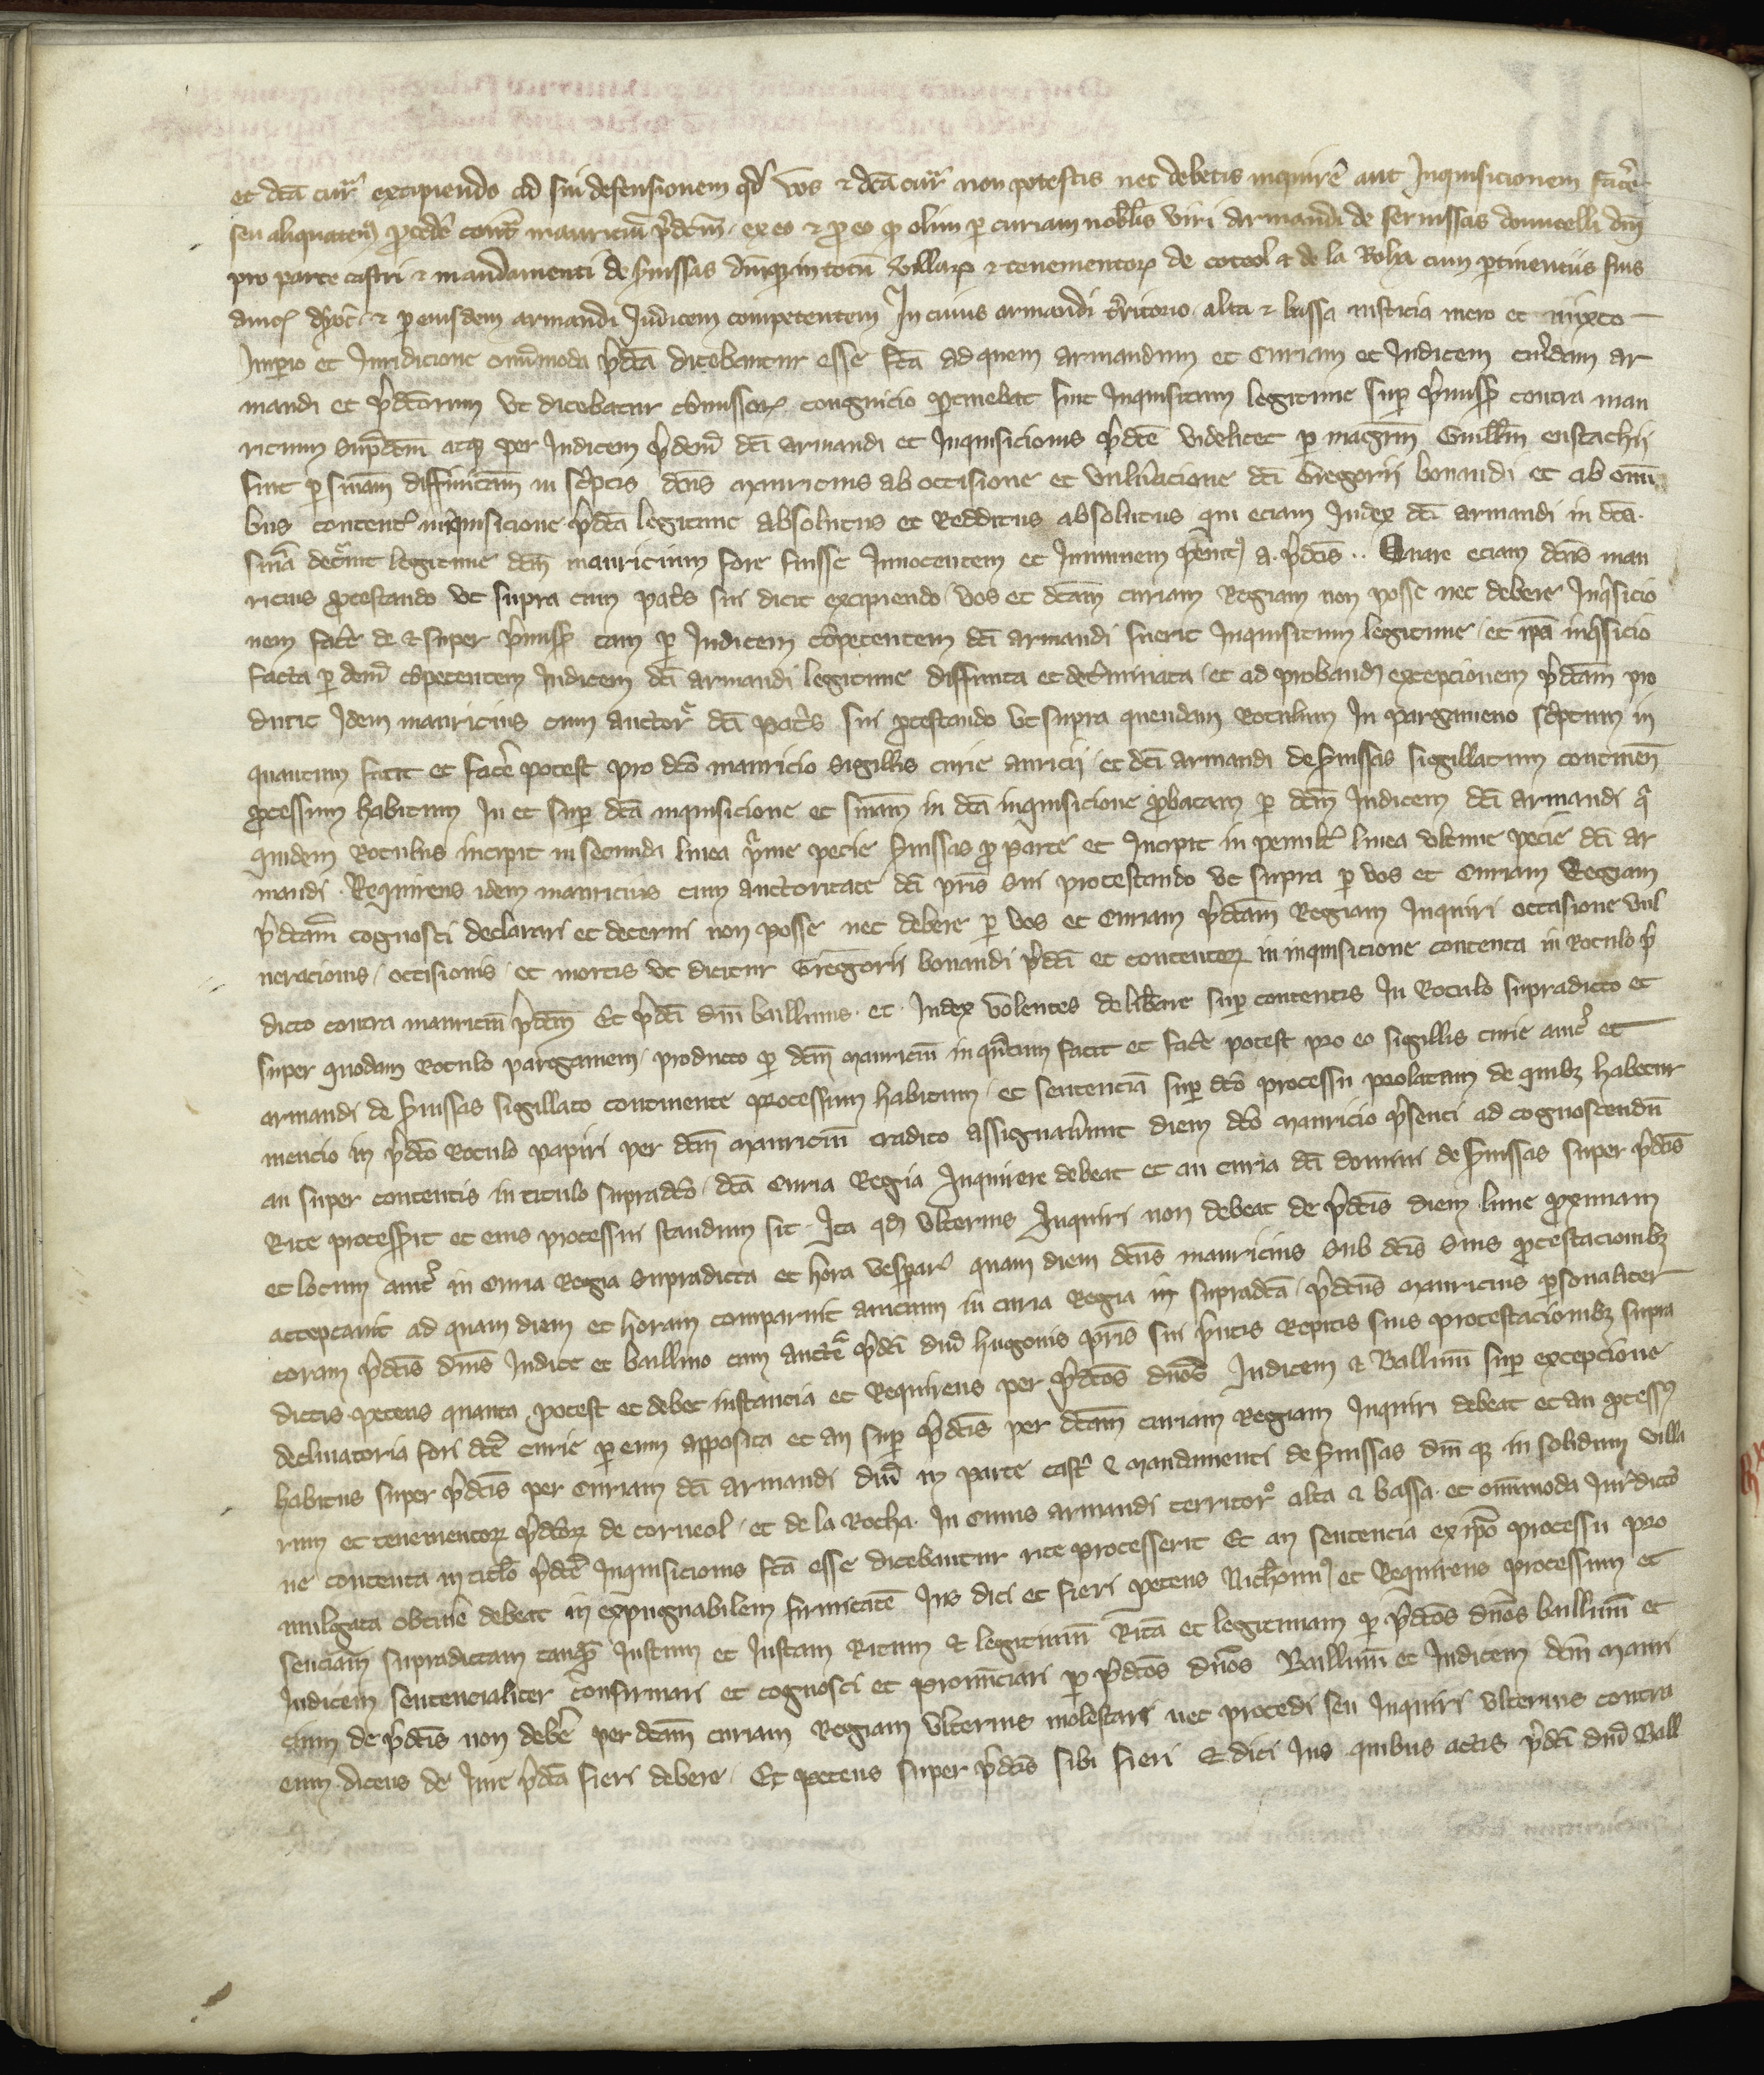 et dcã cur̃ excipiendo ad sui defensionem qd̃ vos & dcã cur̃ non potestis nec debetis inquirẽ aut Inquisicionem facẽ
seu aliquaten9 ꝓcedẽ contᵃ mauriciũ p̃dcm̃ ex eo & ꝓ eo qꝫ olim ꝑ curiam nobilis viri Armandi de sernissas domicelli dñi
pro parte castri & mandamenti de s̃nissas dñiqꝫ in totũ villarꝫ & tenementorꝫ de corcol & de la Roha cum ꝑtinentiis suis
anic̃ dyoc̃ & ꝑ eiusdem armandi Judicem competentem In cuius armandi t̃ritorio alta & bassa iusticia mero et mixto
Imperio et Juridicione omĩmoda p̃dcã dicebantur esse fcã ad quem armandum et Curiam et Judicem eiusdem ar
mandi et p̃dcorum vt dicebatur cõmissorꝫ congnicio ꝑtinebat fuit Inquisitum legitime suꝑ p̃missis contra mau
ricium supᵃdcm̃ atqꝫ per Judicem p̃dem̃ dcĩ armandi et Inquisicionis p̃dcẽ videlicet ꝑ magrm̃ Guillm̃ eustachii
fuit ꝑ snĩam diffinitam in scⁱptis dcũs mauricius ab occisione et vulñacione dcĩ Gregorii bonaudi et ab omĩ
bus contentis inquisicione p̃dcã legitime absolutus et Redditus absolutus qui eciam Judex dcĩ armandi in dcã
snĩa dec̃uit legitime dcm̃ mauricium fore fuisse Innocentem et Inmunem penit9 a p̃dcĩs .. Quare eciam dcũs mau
ricius ꝓtestando vt supra cum pat̃s sui dicit excipiendo vos et dcãm curiam Regiam non posse nec debere Inq̃sicio
nem facẽ de & super p̃missis cum ꝑ Judicem cõpetentem dcĩ armandi fuerit Inquisitum legitime et ip̃a inq̃sicio
facta ꝑ dcm̃ cõpetentem Judicem dcĩ armandi legitime diffinita et det̃minata et ad proband̃ excepcionem p̃dcãm pro
ducit Idem mauricius cum auctor̃ dcĩ pat̃s sui ꝓtestando vt supra quendam Rotulum In pargameno scⁱptum in
quantum facit et facẽ potest pro dcõ mauricio Sigillis curie anicii et dcĩ armandi de s̃nissas sigillatum continen̄
ꝓcessum habitum In et suꝑ dcã inquisicione et snĩam in dcã inquisicione ꝓbatam ꝑ dcm̃ Judicem dcĩ armandi qⁱ
quidem Rotulus incipit in secunda linea pⁱme pecie s̃nissas ꝓ parte et Incipit in penult̃ linea vltime pecie dcĩ ar
mandi . Requirens idem mauricius cum auctoritate dcĩ pris̃ sui protestando vt supra ꝑ vos et Curiam Regiam
p̃dcãm cognosci declarari et decerni non posse nec debere ꝑ vos et Curiam p̃dcãm Regiam Inquiri occasione vul
neracionis occisionis et mortis vt dicitur Gregorii bonaudi p̃dcĩ et contentorꝫ in inquisicione contenta in Rotulo p̃
dicto contra mauriciũ p̃dcm̃ Et p̃dcĩ dñi baillinus et Judex volentes delib̃are suꝑ contentis In Rotulo supradicto et
super quodam Rotulo pargameni producto ꝑ dcm̃ mauriciũ in qᵃntum facit et facẽ potest pro eo sigillis curie anic̃ et
armandi de s̃nissas sigillato continente processum habitum et sentenciã suꝑ dcõ processu prolatam de quibꝫ habetur
mencio in p̃dcõ Rotulo papiri per dcm̃ mauriciũ tradito assignarũnt diem dcõ mauricio p̃senti ad cognoscendũ
an super contentis in titulo supradcõ dcã Curia Regia Inquirere debeat et an curia dcĩ domini de s̃nissas super p̃dcĩs
Rite processit̃ et eius processui standum sit Ita qd̃ vlterius Inquiri non debeat de p̃dcĩs diem lune ꝓximam
et locum anic̃ in Curia Regia supradicta et hora vesperar̃ quam diem dcũs mauricius sub dcĩs suis ꝓtestacionibꝫ
acceptauit ad quam diem et horam comparuit anicium in curia Regia in supradcã p̃dcũs mauricius ꝑsonaliter
coram p̃dcĩs dnĩs Judice et baillino cum aucte̅ p̃dcĩ dñi hugonis pris̃ sui p̃ntis Repitis suis protestacionibꝫ supra
dictis petens quanta potest et debet instancia et Requirens per p̃dcõs dnõs Judicem & Ballinũ suꝑ excepcione
declinatoria fori dcẽ curie ꝑ eum apposita et an suꝑ p̃dcĩs per dcãm curiam Regiam Inquiri debeat et an ꝓcess9
habitus super p̃dcĩs per Curiam dcĩ armandi dñi in parte castⁱ & mandamenti de s̃nissas dñi qꝫ in solidum villa
rum et tenementorꝫ p̃dcõrꝫ de corneol et de la Rocha In Cuius armandi territor̃ alta & bassa et omĩmoda Jur̃dicio
ne contenta in titlo p̃dcẽ Inquisicionis fcã esse dicebantur rite processerit Et an sentencia ex ipõ processu pro
mulgata obtinẽ debeat in expugnabilem firmitatẽ Jus dici et fieri petens et Requirens processum et
senciam supradictam tanqᵃm Justum et Justam Ritum & legitimũ Ritã et legitimam ꝑ p̃dcõs dnõs baillinũ et
Judicem sentencialiter confirmari et cognosci et pronũciari ꝑ p̃dcõs dnõs Baillinũ et Judicem dcm̃ mauri
cium de p̃dcĩs non debẽ per dcãm curiam Regiam vlterius molestari nec procedi seu Inquiri vlterius contra
eum dicens de Jure p̃dcã fieri debere Et petens super p̃dcĩs sibi fieri & dici Jus quibus actis p̃dcĩ dñi Ball